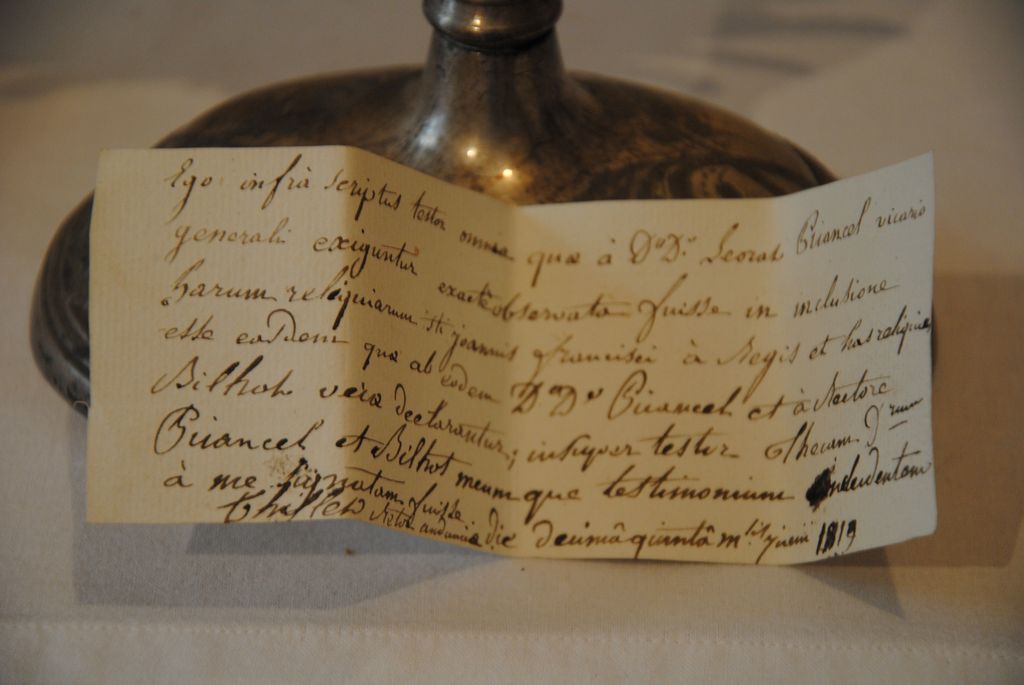 Ego infrà scriptus testor omnia quæ à D° D° Piiancel vicario
generali exiguntur exactè observata fuisse in inclusione
harum reliquiarum sti joannis francisci à Regis et has reliquias
esse easdem quæ ab eodem D° D° Piiancel et à Rectore
Bilhot veræ declarantur; insuper testor thecam D rum
Piiancel et Bilhot meumque testimonium includentem
à me signatam fuisse die decimâ quintâ m sis junii 1819